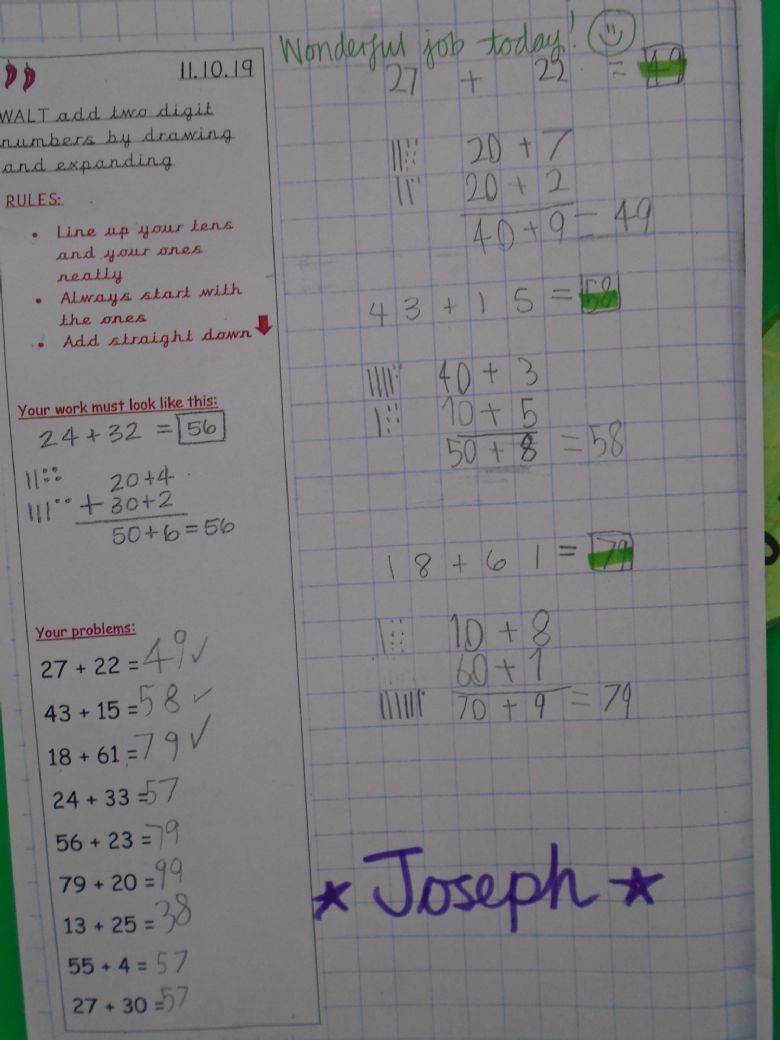 11.10.19
WALT add two digit
numbers by drawing
and expanding
RULES:
• Line up your tens
and your ones
neatly
• Always start with
the ones
• Add straight down
Your work must look like this:
24 + 32 = 56
20+4
+ 30+2
50+6=56
Your problems:
27 + 22 = 49 ✓
43 + 15 = 58 ✓
18 + 61 = 79 ✓
24 + 33 = 57
56 + 23 = 79
79 + 20 = 99
13 + 25 = 38
55 + 4 = 57
27 + 30 = 57
Wonderful job today!
27 + 22 = 49
20 + 7
20 + 2
40 + 9 = 49
43 + 15 = 58
40 + 3
10 + 5
50 + 8 = 58
18 + 61 = 79
10 + 8
60 + 1
70 + 9 = 79
★ Joseph ★